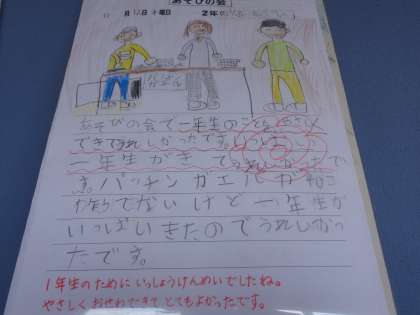 あそびの会
月 日 曜日 2年
パッチン
ガエル
あそびの会で一年生のことをやさしく
できてうれしかったです。いっぱい
一年生がきてうれしかったで
す。パッチンガエルが
でないけど一年生が
いっぱいきたのでうれしかっ
たです。
1年生のために いっしょうけんめいでしたね。
やさしく おせわできて とてもよかったです。